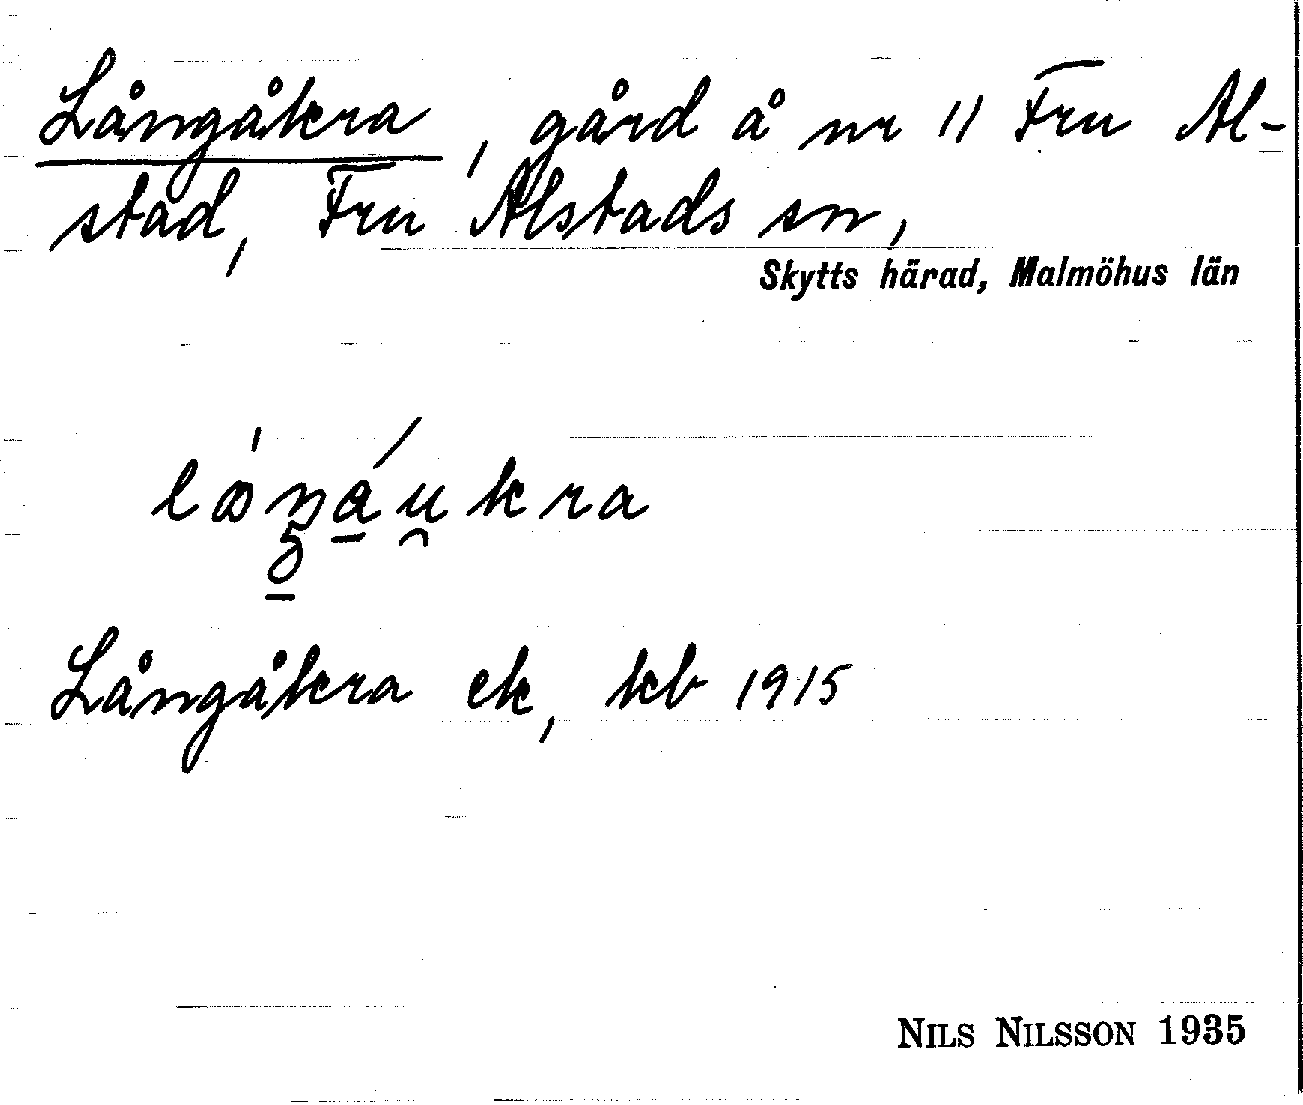 Långåkra, gård å nr 11 Fru Al-
stad, Fru Alstads sn,
Skytts härad, Malmöhus län
Långåkra ek, kb 1915
NILS NILSSON 1935